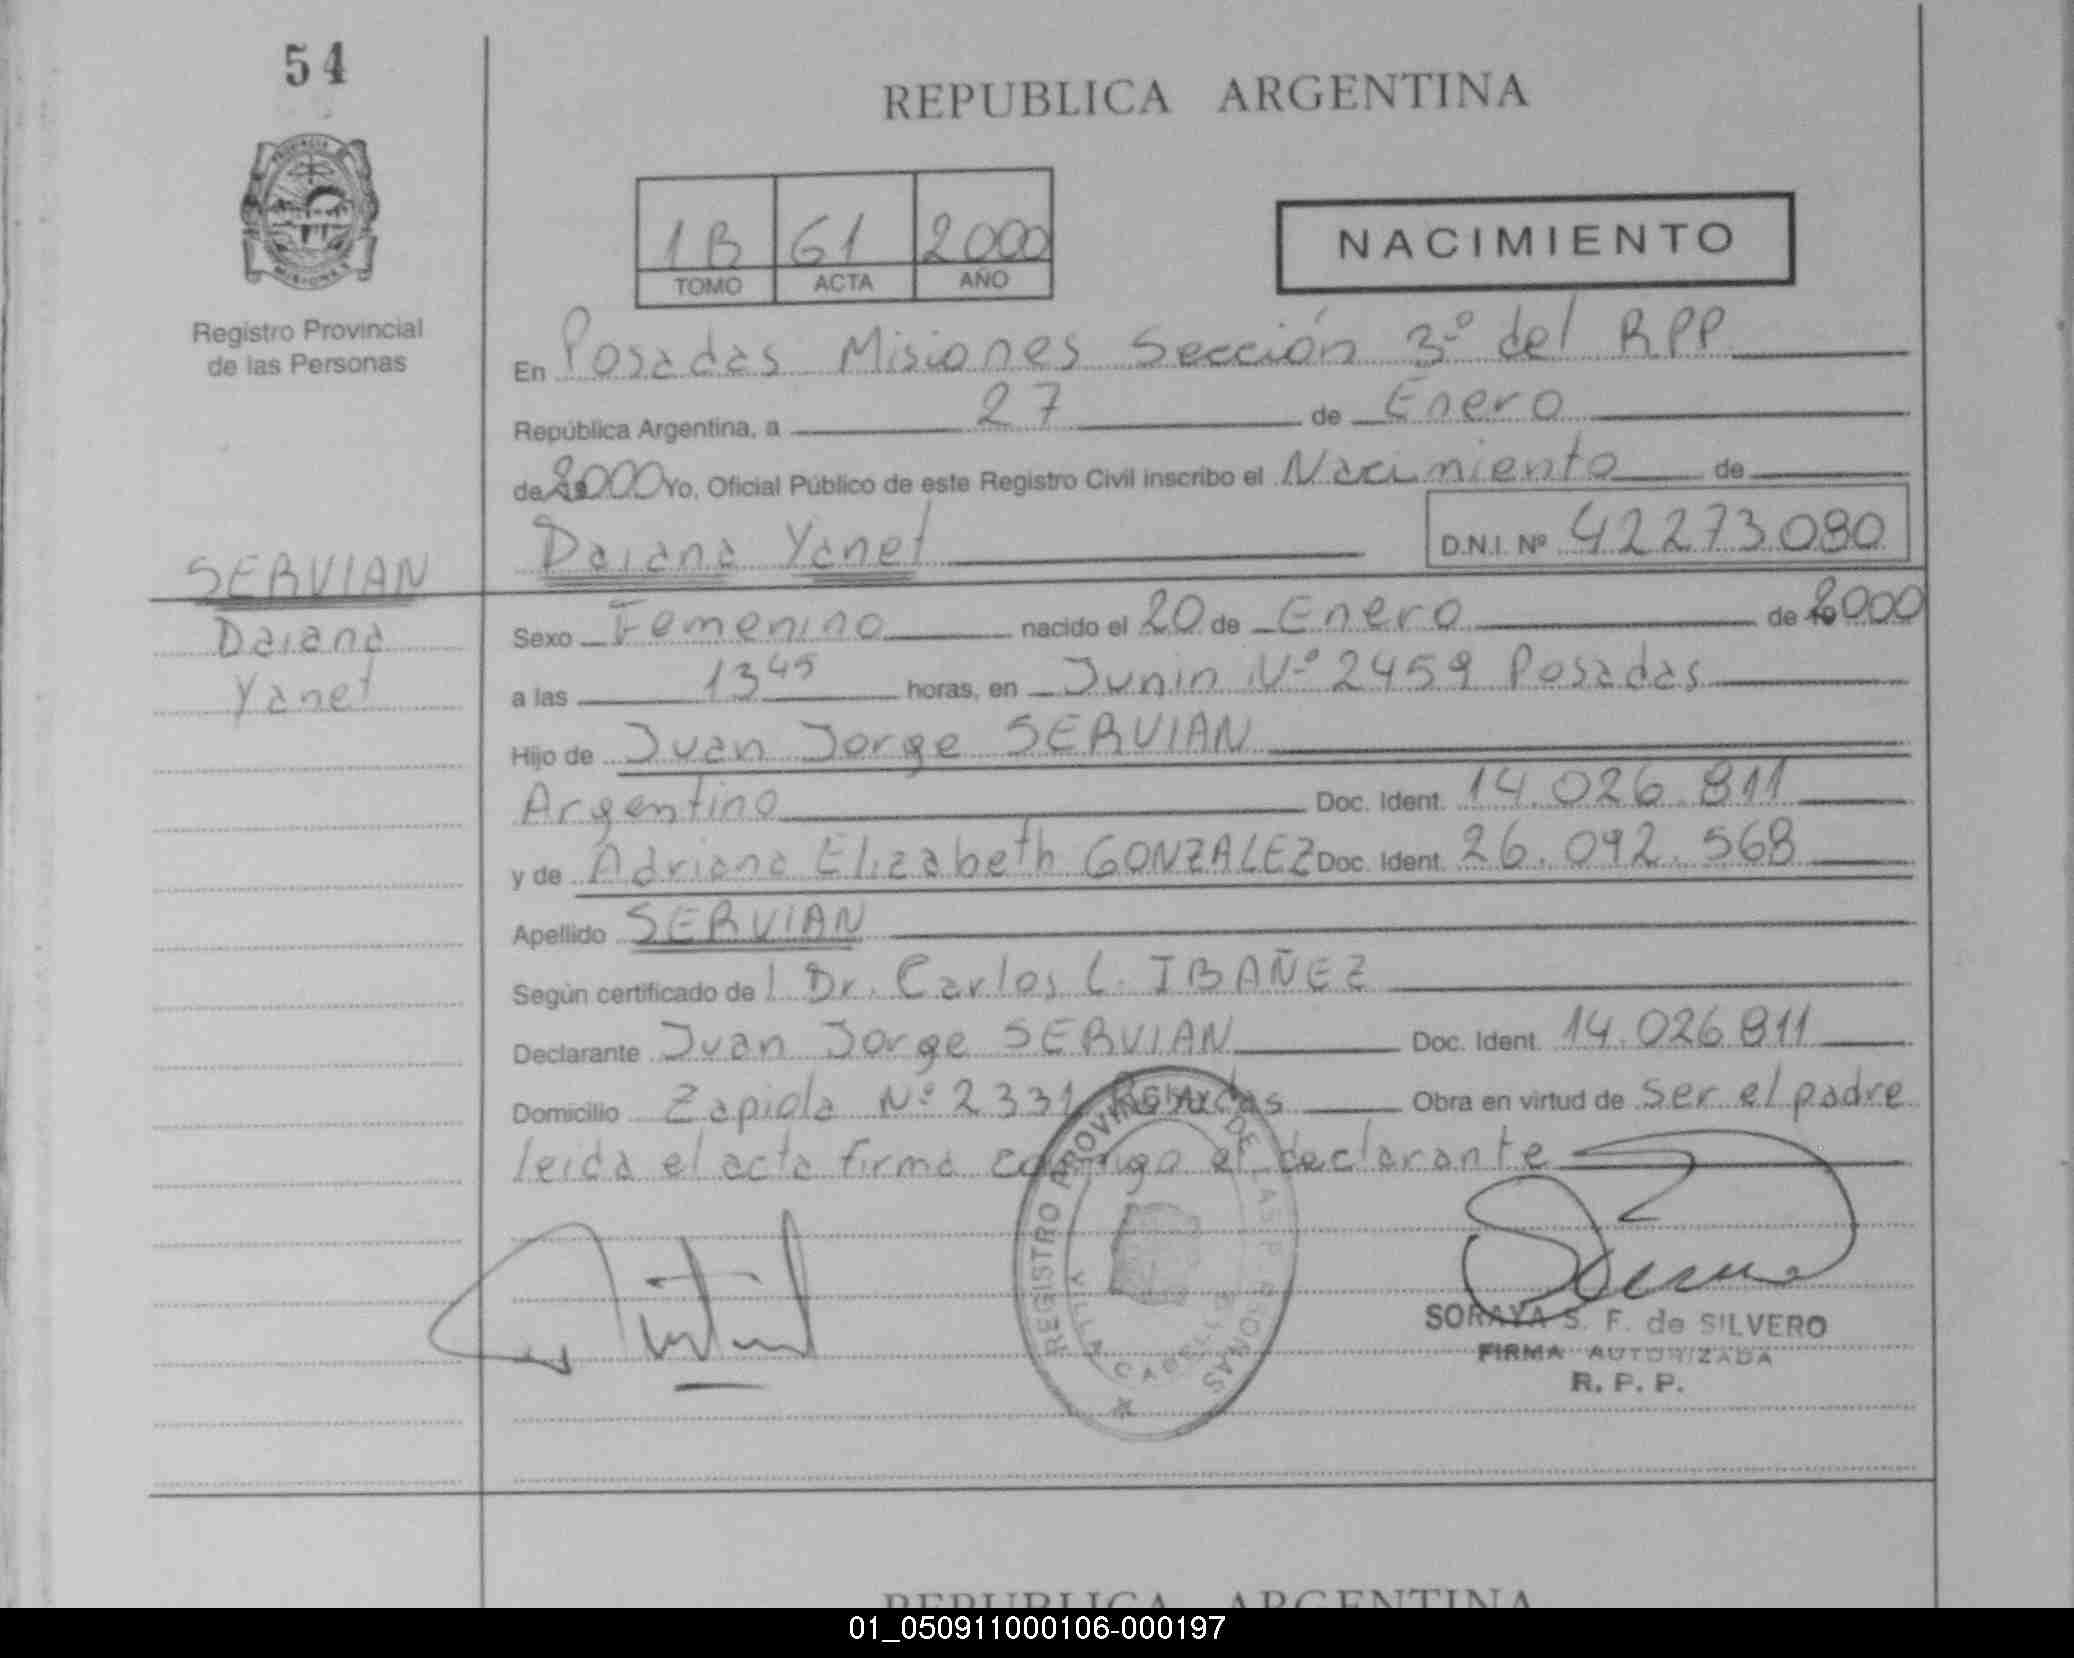 54
REPUBLICA ARGENTINA
1B 61 2000
TOMO ACTA AÑO
NACIMIENTO
Registro Provincial
de las Personas
En Posadas Misiones Sección 3º del RPP
República Argentina, a 27 de Enero
de 2000 Yo, Oficial Público de este Registro Civil inscribo el Nacimiento de
Daiana Yanet D.N.I. Nº 42273080
SERVIAN
Daiana
Yanet
Sexo Femenino nacido el 20 de Enero de 2000
a las 13 45 horas, en Junin Nº 2459 Posadas
Hijo de Juan Jorge SERVIAN
Argentino Doc. Ident. 14.026.811
y de Adriana Elizabeth GONZALEZ Doc. Ident. 26.092.568
Apellido SERVIAN
Según certificado del Dr. Carlos L. IBAÑEZ
Declarante Juan Jorge SERVIAN Doc. Ident. 14.026.811
Domicilio Zapiola Nº 2331 Posadas Obra en virtud de ser el padre
leida el acta firma conmigo el declarante
REGISTRO PROVINCIAL DE LAS PERSONAS
VILLA CABELLO
SORAYA S. F. de SILVERO
FIRMA AUTORIZADA
R. P. P.
REPUBLICA ARGENTINA
01_050911000106-000197